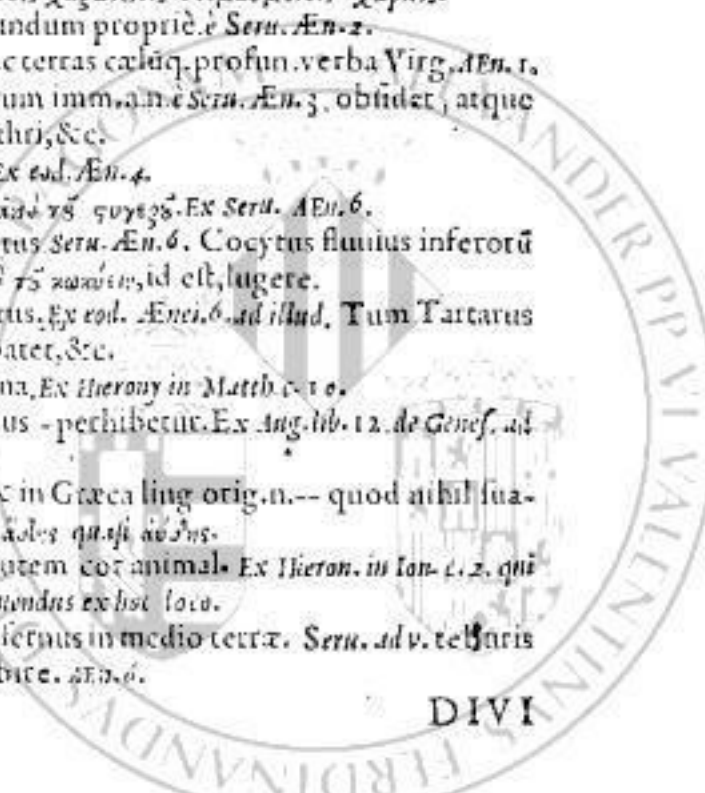 undum propriè.è Seru. Æn. 2.
ac terras cælūq. profun. verba Virg. AEn. 1.
um imm. a.n. è Seru. Æn. 3. obsidet, atque
thri, &c.
Ex eod. Æn. 4.
Ex Seru. AEn. 6.
tus Seru. Æn. 6. Cocytus fluuius inferorū
id est, lugere.
tus. Ex eod. Ænei. 6. ad illud. Tum Tartarus
patet, &c.
na, Ex Hierony in Matth. c. 10.
us - perhibetur. Ex Aug. lib. 12. de Genes. ad
c in Græca ling orig. n. -- quod nihil sua-
quasi
utem cor animal. Ex Hieron. in Ion. c. 2. qui
endus ex hoc loco.
fernus in medio terræ. Seru. ad v. telluris
AEn. 6.
DIVI
ALEXANDER PP VI VALENTINVS FERDINANDVS